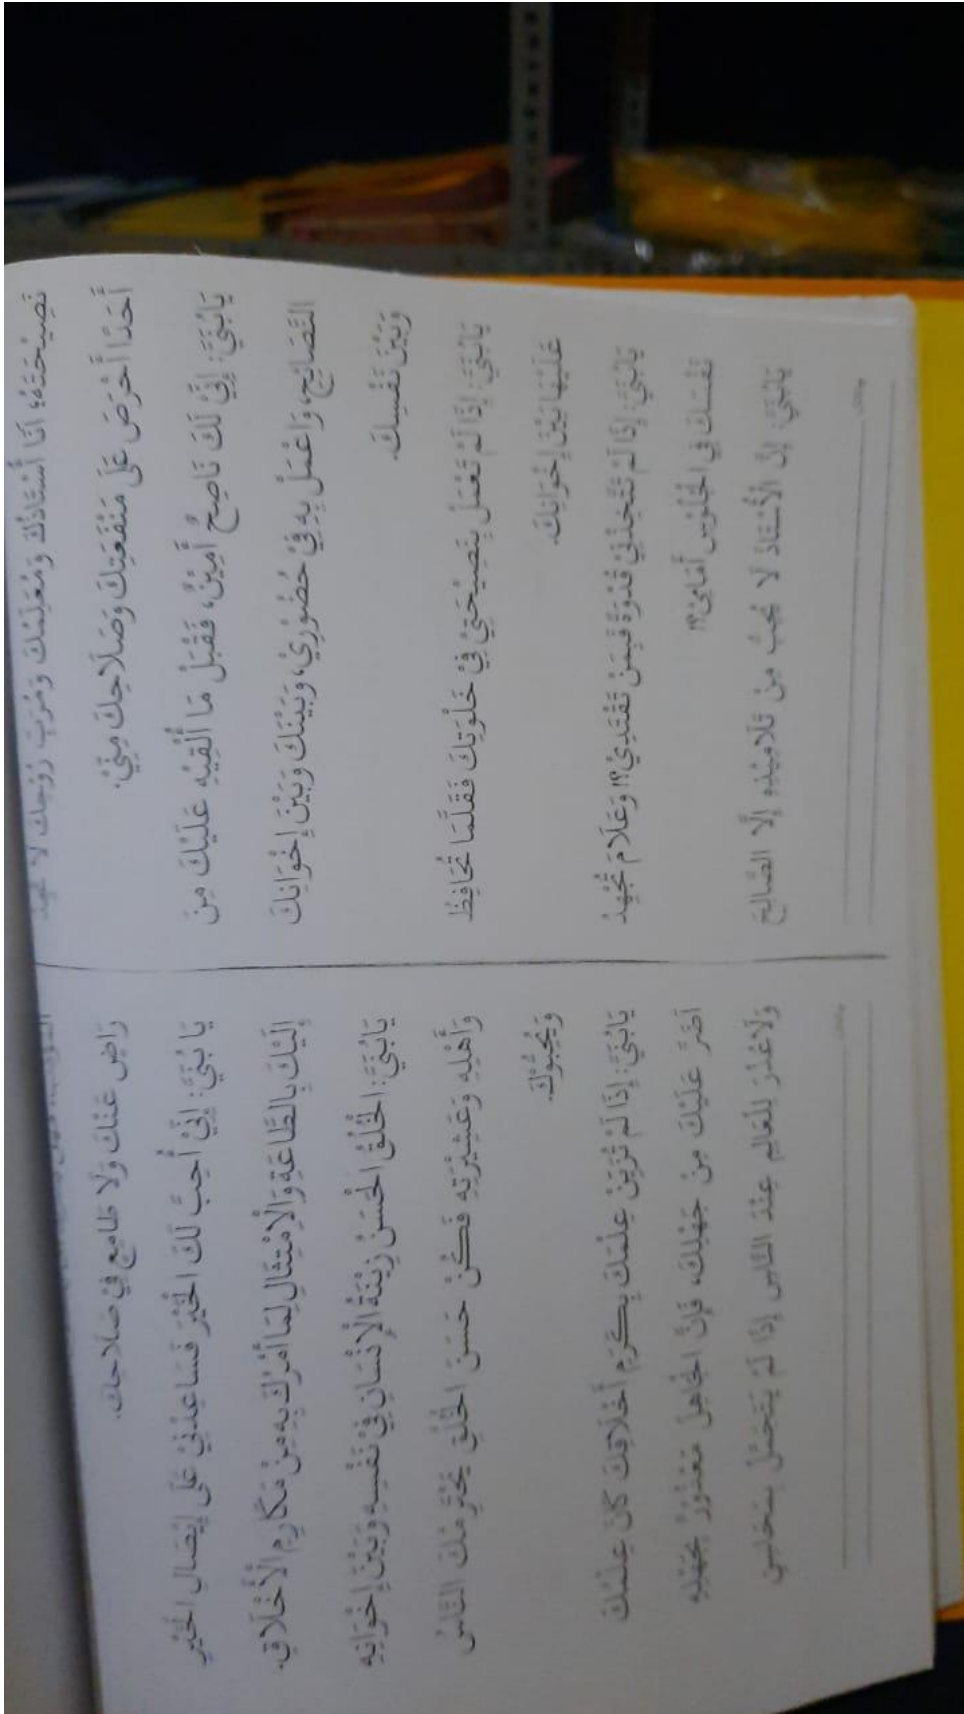 نَصِيْحَتَهُ؛ أَنَا أُسْتَاذُكَ وَمُعَلِّمُكَ وَمُرَبِّ رُوْحِكَ لَا تَجِدُ
أَحَدًا أَحْرَصَ عَلَى مَنْفَعَتِكَ وَصَلَاحِكَ مِنِّيْ.
يَابُنَيَّ: إِنِّيْ لَكَ نَاصِحٌ أَمِيْنٌ، فَقْبَلْ مَا أُلْقِيْهِ عَلَيْكَ مِنَ
النَّصَائِحِ، وَاعْمَلْ بِهِ فِيْ حُضُوْرِيْ، وَبَيْنَكَ وَبَيْنَ إِخْوَانِكَ
وَبَيْنَ نَفْسِكَ.
يَابُنَيَّ: إِذَا لَمْ تَعْمَلْ بِنَصِيْحَتِيْ فِيْ خَلْوَتِكَ فَقَلَّمَا تُحَافِظُ
عَلَيْهَا بَيْنَ إِخْوَانِكَ.
يَابُنَيَّ: إِذَا لَمْ تَتَّخِذْنِيْ قُدْوَةً فَبِمَنْ تَقْتَدِيْ؟! وَعَلَامَ تُجْهِدُ
نَفْسَكَ فِي الْجُلُوْسِ أَمَامِيْ؟!
يَابُنَيَّ: إِنَّ الْأُسْتَاذَ لَا يُحِبُّ مِنْ تَلَامِيْذِهِ إِلَّا الصَّالِحَ
رَاضٍ عَنْكَ وَلَا طَامِعٍ فِيْ صَلَاحِكَ.
يَا بُنَيَّ: إِنِّيْ أُحِبُّ لَكَ الْخَيْرَ فَسَاعِدْنِيْ عَلَى إِيْصَالِ الْخَيْرِ
إِلَيْكَ بِالطَّاعَةِ وَالْاِمْتِثَالِ لِمَا آمُرُكَ بِهِ مِنْ مَكَارِمِ الْأَخْلَاقِ.
يَابُنَيَّ: الْخُلُقُ الْحَسَنُ زِيْنَةُ الْإِنْسَانِ فِيْ نَفْسِهِ وَبَيْنَ إِخْوَانِهِ
وَأَهْلِهِ وَعَشِيْرَتِهِ فَكُنْ حَسَنَ الْخُلُقِ يَحْتَرِمْكَ النَّاسُ
وَيُحِبُّوْكَ.
يَابُنَيَّ: إِذَا لَمْ تُزَيِّنْ عِلْمَكَ بِكَرَمِ أَخْلَاقِكَ كَانَ عِلْمُكَ
أَضَرَّ عَلَيْكَ مِنْ جَهْلِكَ، فَإِنَّ الْجَاهِلَ مَعْذُوْرٌ بِجَهْلِهِ
وَلَاعُذْرَ لِلْعَالِمِ عِنْدَ النَّاسِ إِذَا لَمْ يَتَجَمَّلْ بِمَحَاسِنِ